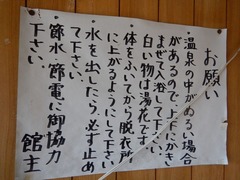 お願い
温泉の中がぬるい場合
があるので、上下にかき
まぜて入浴して下さい。
白い物は湯花です
体をふいてから脱衣所
に上がるようにして下さい
水を出したら必ず止め
て下さい。
節水節電に御協力
下さい。
館主